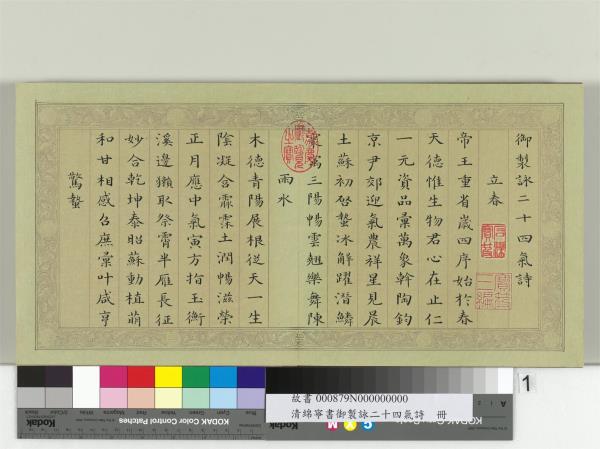 御製詠二十四氣詩
立春
帝王重省歲四序始於春
天德惟生物君心在止仁
一元資品彙萬象斡陶鈞
京尹郊迎氣農祥星見晨
土蘇初啟蟄冰解躍潛鱗
三陽暢雲翹樂舞陳
雨水
木德青陽展根從天一生
陰凝含霢霂土潤暢滋榮
正月應中氣寅方指玉衡
溪邊獺取祭霄半雁長征
妙合乾坤泰昭蘇動植萌
和甘相感召庶彙叶咸亨
驚蟄
故書 000879N000000000
清綿寧書御製詠二十四氣詩 冊
KODAK Color Control Patches
1